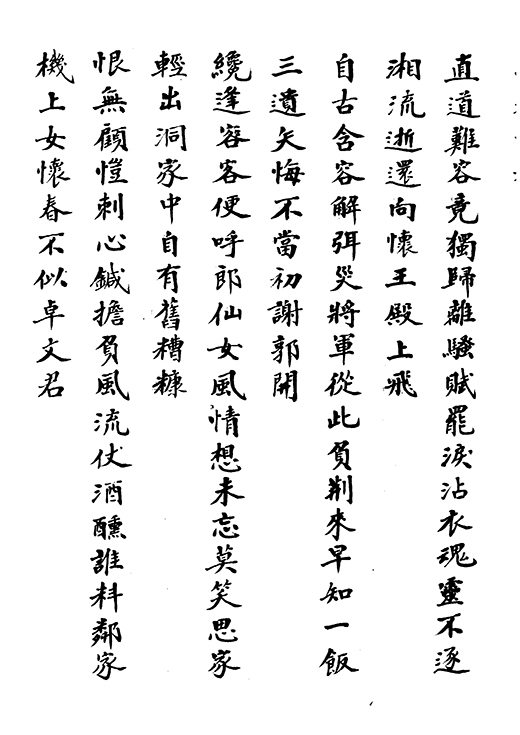 直道難容竟獨歸離騷賦罷淚沾衣魂靈不逐
湘流逝還向懷王殿上飛
自古含容解弭災將軍從此負荆來早知一飯
三遺矢悔不當初謝郭開
纔逢容客便呼郎仙女風情想未忘莫笑思家
輕出洞家中自有舊糟糠
恨無顧愷刺心鍼擔負風流仗酒醺誰料鄰家
機上女懷春不似卓文君